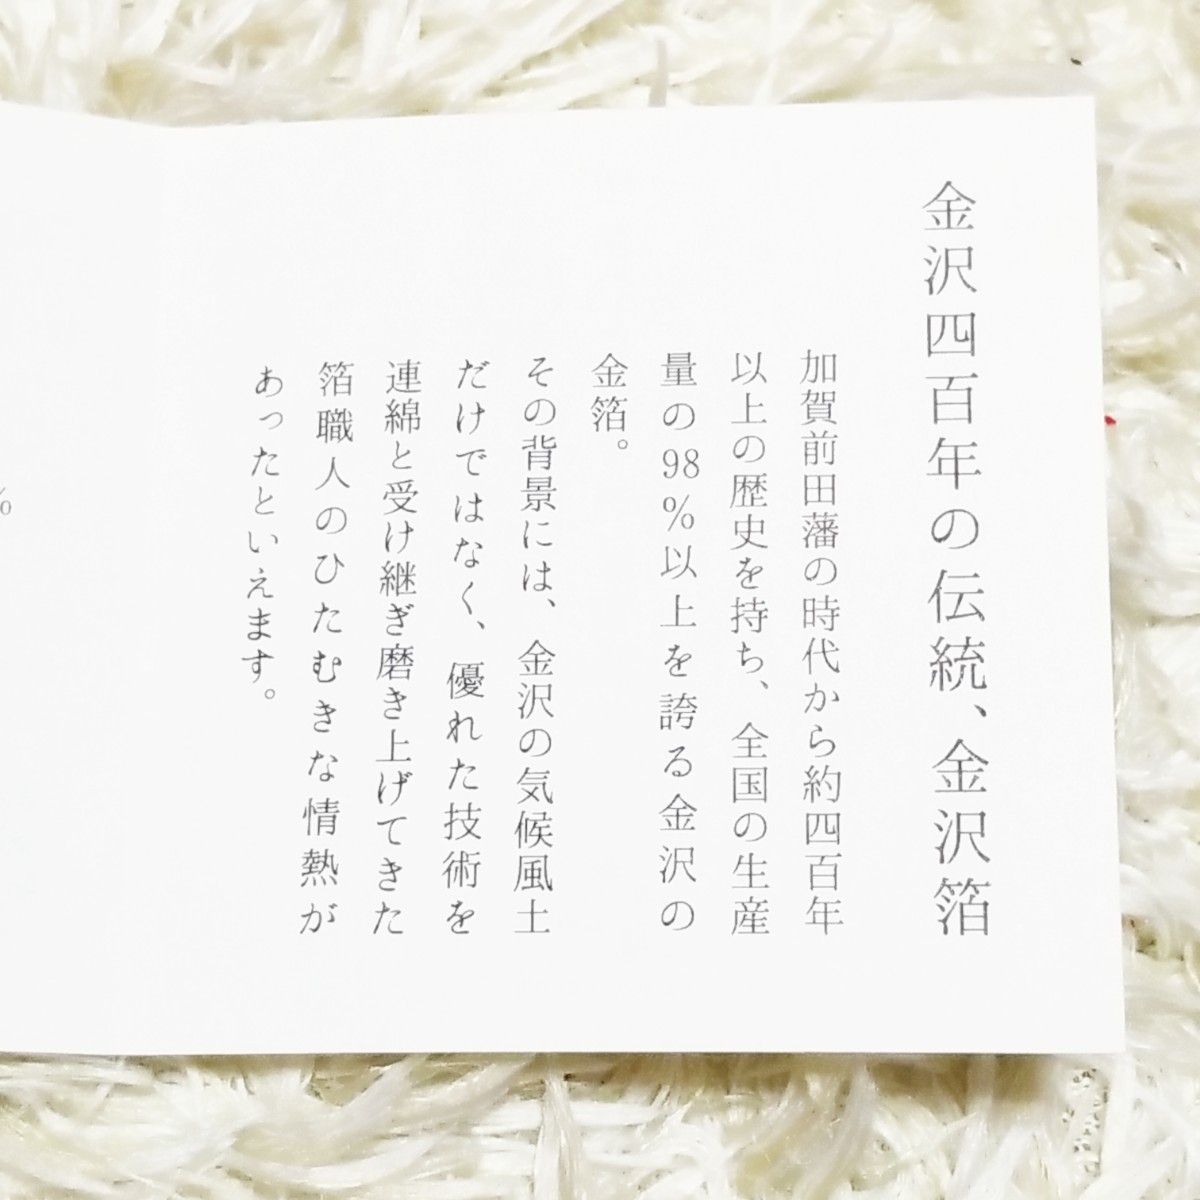 金沢四百年の伝統、金沢箔
加賀前田藩の時代から約四百年
以上の歴史を持ち、全国の生産
量の98%以上を誇る金沢の
金箔。
その背景には、金沢の気候風土
だけではなく、優れた技術を
連綿と受け継ぎ磨き上げてきた
箔職人のひたむきな情熱が
あったといえます。
%